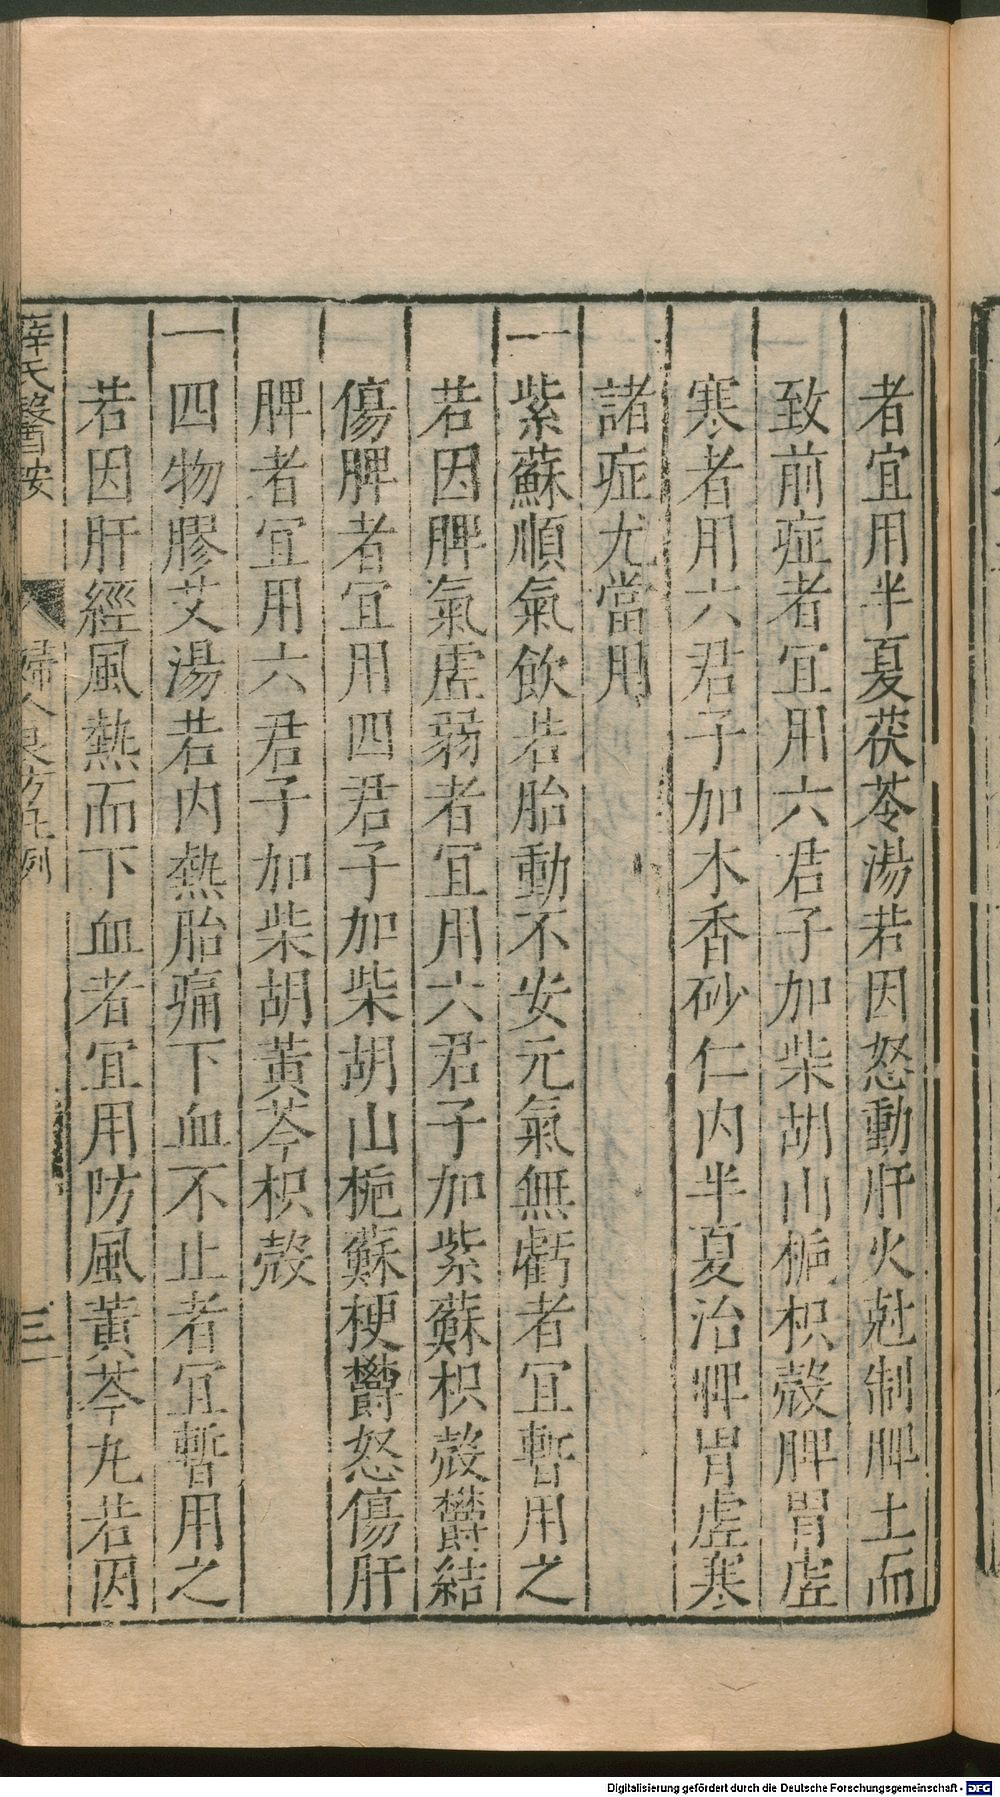 者宜用半夏茯苓湯若因怒動肝火尅制脾土而
致前症者宜用六君子加柴胡山梔枳殼脾胃虛
寒者用六君子加木香砂仁内半夏治脾胃虛寒
諸症尤當用
一紫蘇順氣飲若胎動不安元氣無虧者宜暫用之
若因脾氣虛弱者宜用六君子加紫蘇枳殼欝結
傷脾者宜用四君子加柴胡山梔蘇梗欝怒傷肝
脾者宜用六君子加柴胡黃芩枳殼
一四物膠艾湯若内熱胎痛下血不止者宜暫用之
若因肝經風熱而下血者宜用防風黃芩丸若因
薛氏醫按 婦人良方凡例 三
Digitalisierung gefördert durch die Deutsche Forschungsgemeinschaft - DFG